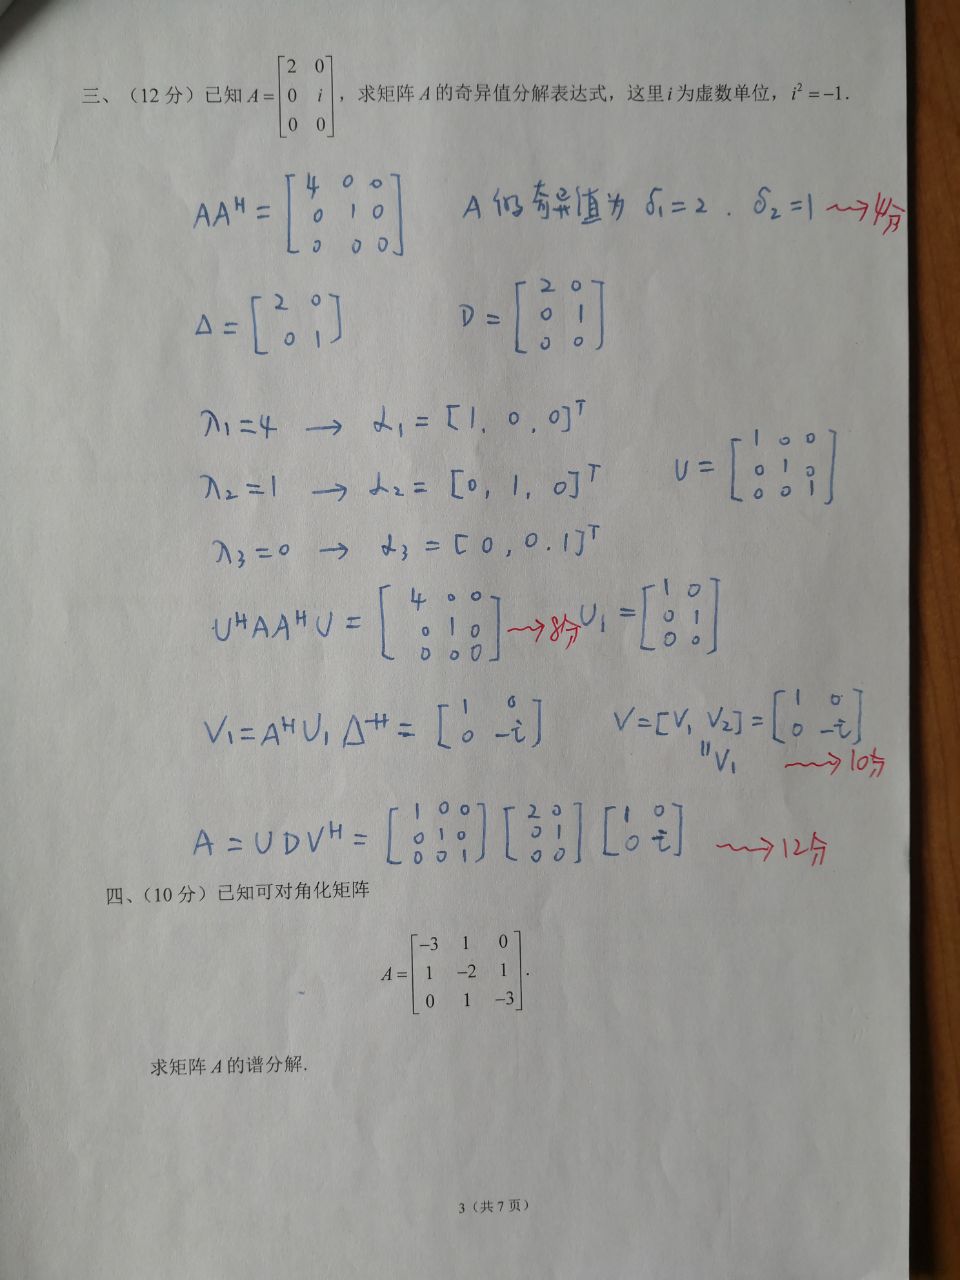 三、（12 分）已知 A = [2 0; 0 i; 0 0]，求矩阵 A 的奇异值分解表达式，这里 i 为虚数单位，i² = −1.
AAᴴ = [4 0 0; 0 1 0; 0 0 0] A 的奇异值为 δ₁ = 2 . δ₂ = 1 ⟿ 4分
Δ = [2 0; 0 1] D = [2 0; 0 1; 0 0]
λ₁ = 4 → α₁ = [1, 0, 0]ᵀ
λ₂ = 1 → α₂ = [0, 1, 0]ᵀ U = [1 0 0; 0 1 0; 0 0 1]
λ₃ = 0 → α₃ = [0, 0. 1]ᵀ
UᴴAAᴴU = [4 0 0; 0 1 0; 0 0 0] ⟿ 8分 U₁ = [1 0; 0 1; 0 0]
V₁ = AᴴU₁Δ⁻ᴴ = [1 0; 0 −i] V = [V₁ V₂] = [1 0; 0 −i]
"V₁ ⟿ 10分
A = UDVᴴ = [1 0 0; 0 1 0; 0 0 1] [2 0; 0 1; 0 0] [1 0; 0 i] ⟿ 12分
四、（10 分）已知可对角化矩阵
A = [−3 1 0; 1 −2 1; 0 1 −3].
求矩阵 A 的谱分解.
3（共 7 页）